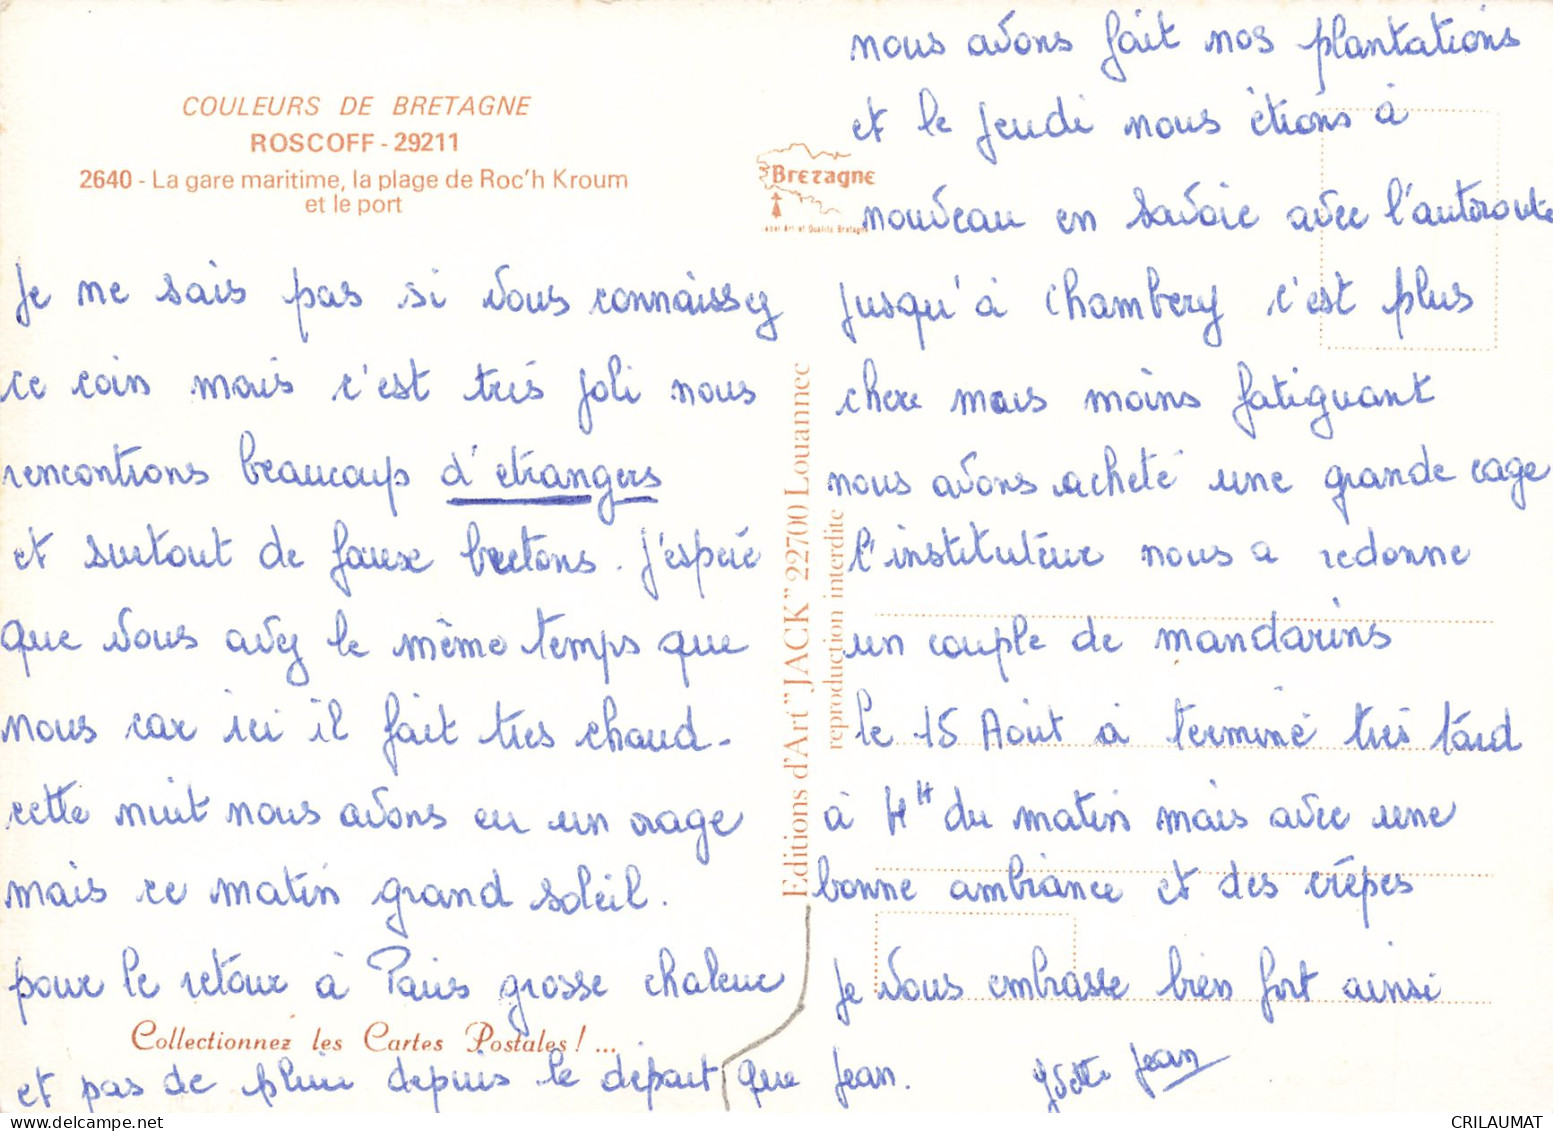 COULEURS DE BRETAGNE
ROSCOFF - 29211
2640 - La gare maritime, la plage de Roc'h Kroum
et le port
Je ne sais pas si vous connaissez
ce coin mais c'est très joli nous
rencontrons beaucoup d'etrangers
et surtout de faux bretons. J'espère
que vous avez le même temps que
nous car ici il fait tres chaud -
cette nuit nous avons eu un orage
mais ce matin grand soleil.
pour le retour à Paris grosse chaleur
Collectionnez les Cartes Postales ! ...
et pas de pluie depuis le départ que
Bretagne
Label Art et Qualité Bretagne
Editions d'Art "JACK" 22700 Louannec
reproduction interdite
nous avons fait nos plantations
et le jeudi nous étions à
nouveau en Savoie avec l'autoroute
jusqu'à Chambery c'est plus
chere mais moins fatiguant
nous avons acheté une grande cage
l'instituteur nous a redonne
un couple de mandarins
le 15 Août à terminé très tard
à 4H du matin mais avec une
bonne ambiance et des crêpes
Je vous embrasse bien fort ainsi
Jean. Yvette Jean
CRILAUMAT